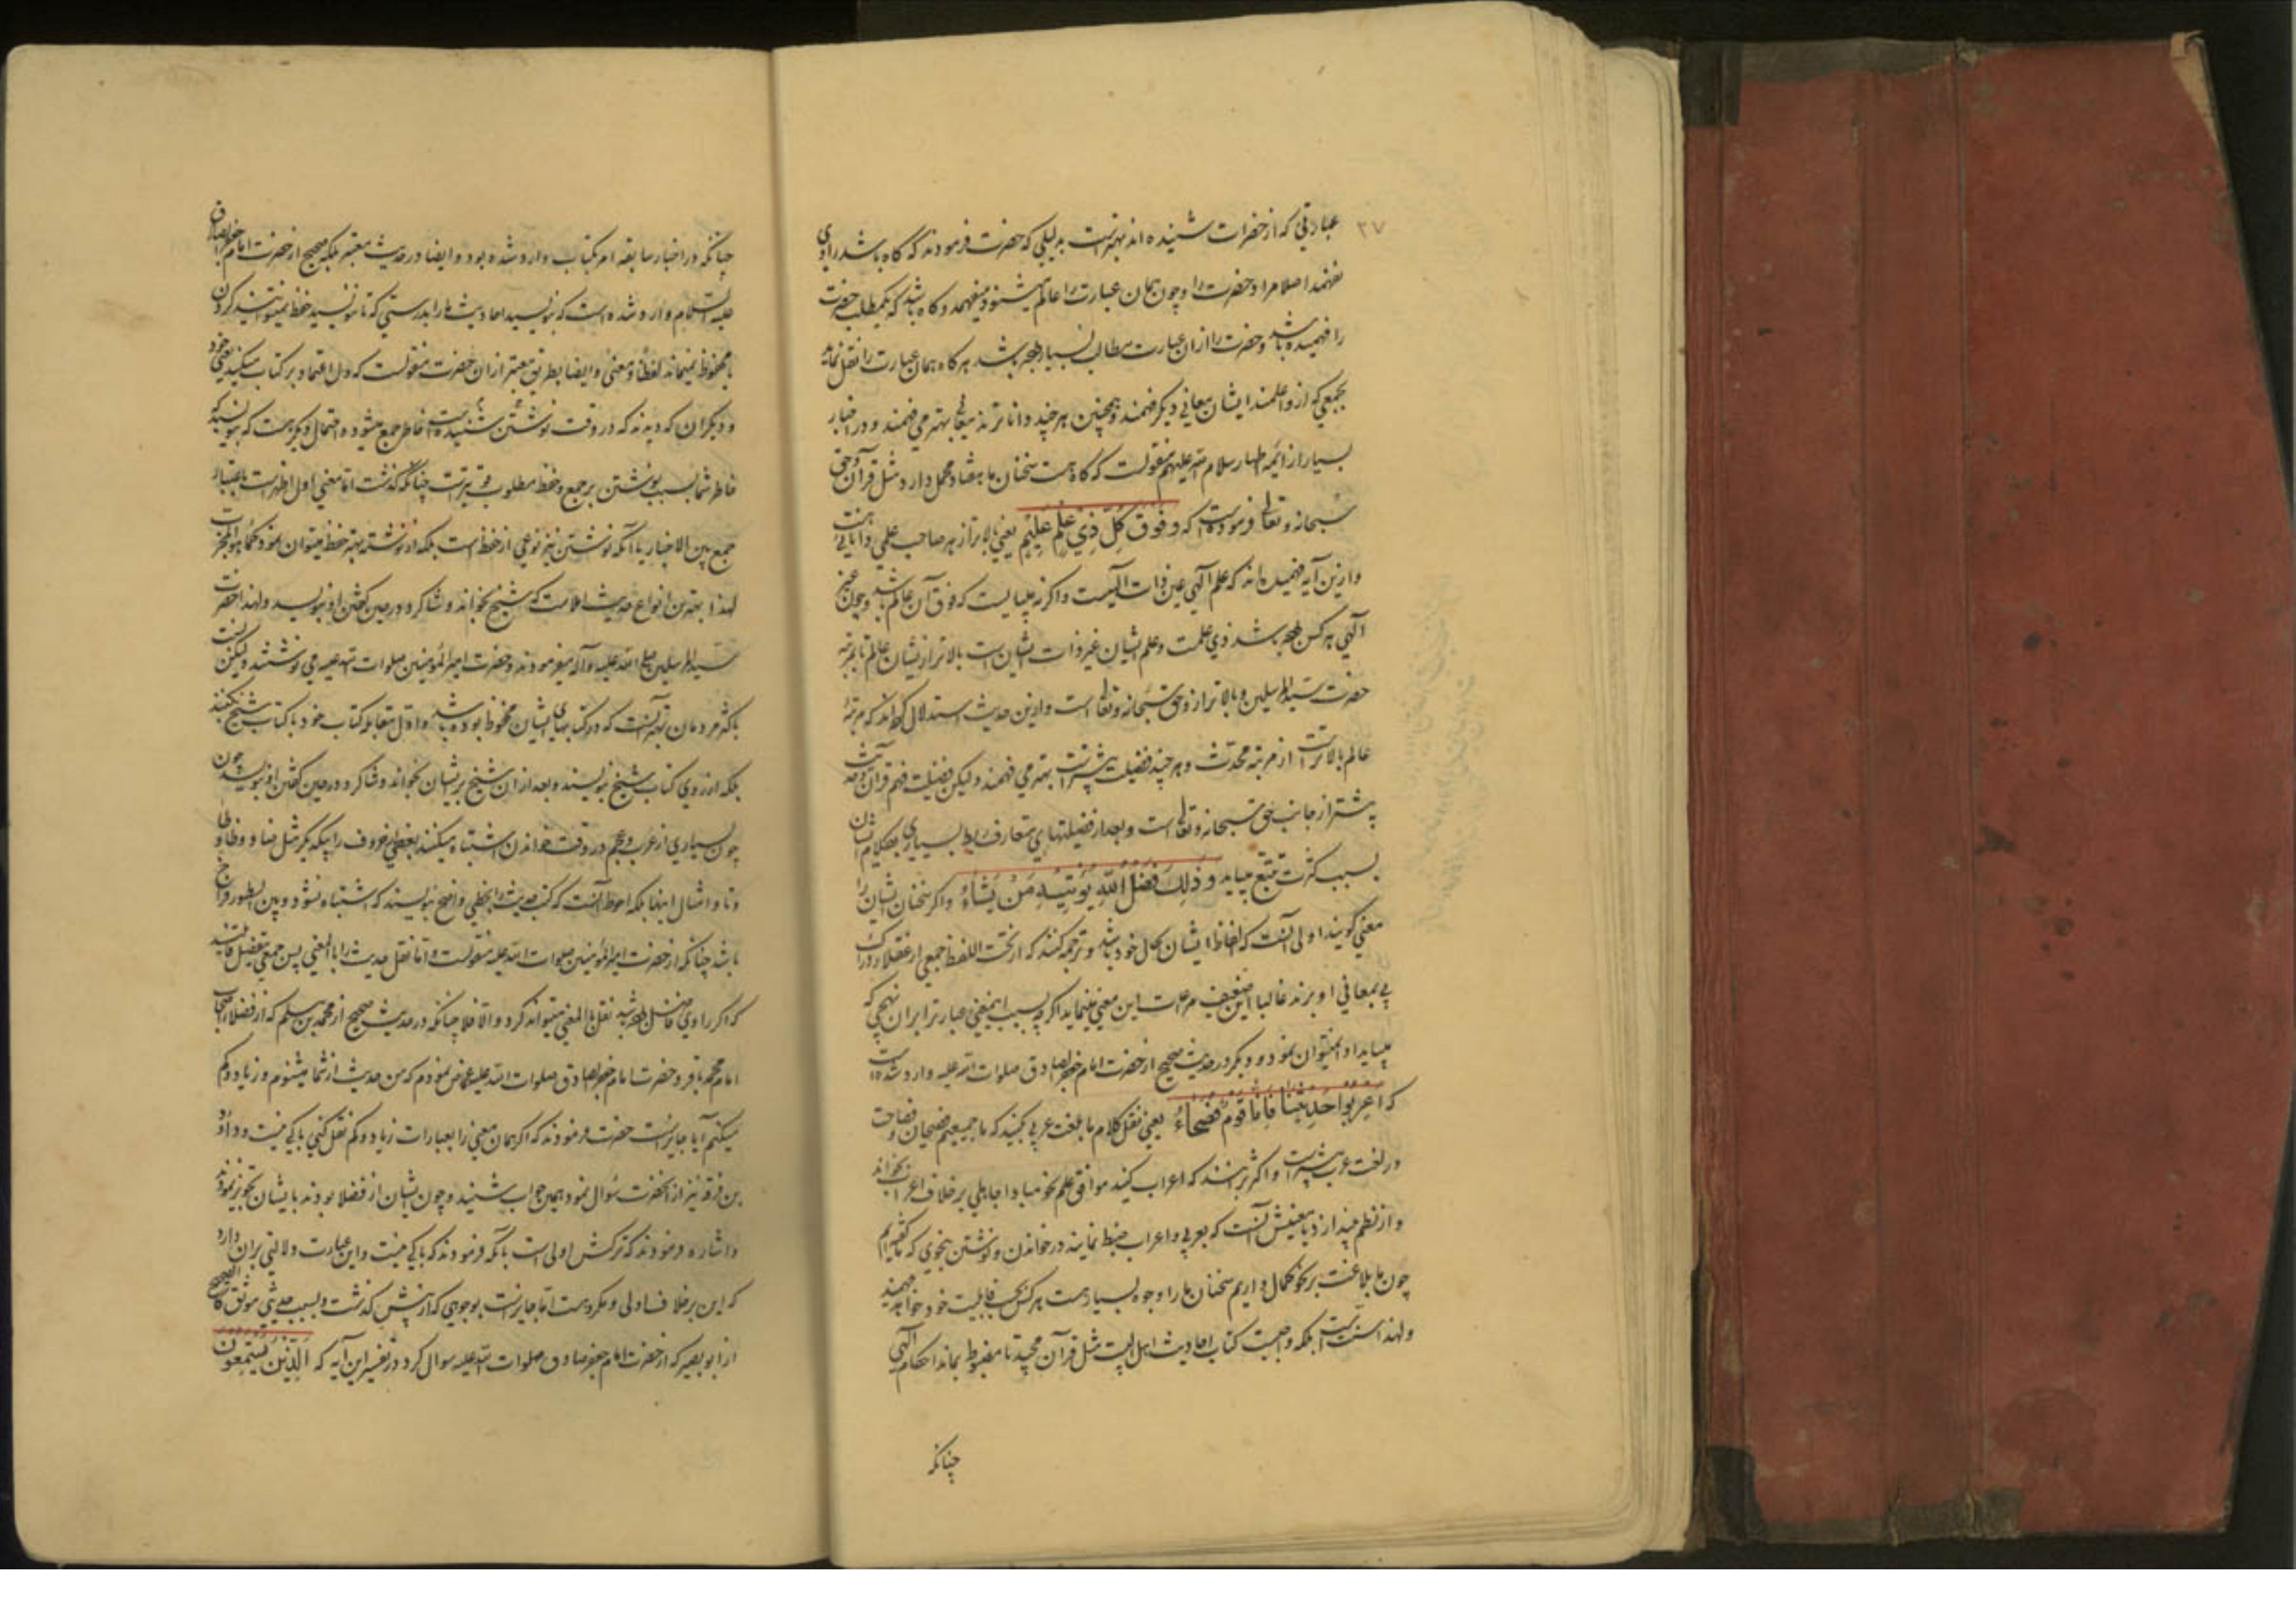 ۳۷
عبارتی که از حضرات شنیده اند بهتر است بدلیلی که حضرت فرمودند که گاه باشد راوی
نفهمد اصلا مراد حضرت را و چون همان عبارت را عالم میشنود میفهمد و گاه باشد که یکمطلب حضرت
را فهمیده باشد و حضرت را از ان عبارت مطالب بسیار باشد هر گاه همان عبارت را نقل نماید
بجمعی که از و اعلمند ایشان معانی دیگر فهمند و همچنین هر چند داناترند معانی بهتر می فهمند و در اخبار
بسیار از ائمه اطهار سلام الله علیهم منقولست که گاه هست سخنان ما هفتاد محمل دارد مثل قرآن و حق
سبحانه و تعالی فرموده است که وَفَوْقَ كُلِّ ذِيْ عِلْمٍ عَلِيْمٌ یعنی بالاتر از هر صاحب علمی دانایی هست
و ازین آیه فهمیده اند که علم الهی عین ذات الهیست و اگر نه میبایست که فوق آن عالم باشد و چون غیر
الهی هر کس باشد ذی علمست و علم ایشان غیر ذات ایشان است بالاتر از ایشان عالم تا بمرتبه
حضرت سید المرسلین و بالاتر از و حق سبحانه و تعالی است و ازین حدیث استدلال کرده اند که مرتبهٔ
عالم بالاتر است از مرتبه محدث و هر چند فضیلت بیشتر است بهتر می فهمند و لیکن فضیلت فهم قرآن و حدیث
بیشتر از جانب حق سبحانه و تعالی است و بعد از فضیلتهای متعارف ربط بسیاری بکلام ایشان
بسبب کثرت تتبع میباید وَ ذٰلِكَ فَضْلُ اللّٰهِ يُؤْتِيْهِ مَنْ يَشَاءُ و اگر سخنان ایشان را
معنی گویند اولی آنست که الفاظ ایشان بحال خود باشد و ترجمه کنند که از تحت اللفظ جمعی از عقلا و
پی بمعانی او برند غالبا این ضعیف مراعات این معنی مینماید اگر چه بسبب اینمعنی عبارتر ابران نهجی که
میباید ادا نمیتوان نمود و دیگر در حدیث صحیح از حضرت امام جعفر صادق صلوات الله علیه وارد شده است
که اَعْرِبُوا حَدِيْثَنَا فَاِنَّا قَوْمٌ فُصَحَاءُ یعنی نقل کلام ما بلغت عربی کنید که ما جمیعیم فصیحان و فصاحت
در لغت عرب بیشتر است و اکثر برانند که اعراب کنید موافق علم نحو مبادا جاهلی بر خلاف اعراب بخواند
و از نظم بیندازد یا معنیش آنست که بعربی و اعراب ضبط نمایند در خواندن و نوشتن بنحوی که ما گفته ایم
چون ما بلاغت بر نحو کمال داریم سخنان ما را وجوه بسیار هست هر کس بحسب قابلیت خود خواهد فهمید
و لهذا سنت است بلکه واجبست کتاب احادیث اهل البیت مثل قرآن مجید تا مضبوط بماند احکام الهی
چنانکه
چنانکه در اخبار سابقه امر بکتاب وارد شده بود و ایضا در حدیث معتبر بلکه صحیح از حضرت امام جعفر صادق
علیه السلام وارد شده است که بنویسید احادیث ما را بدرستی که تا ننویسید حفظ نمیتوانید کردن
یا محفوظ نمیماند لفظا و معنی و ایضا بطریق معتبر از ان حضرت منقولست که دل اعتماد بر کتاب میکند یعنی خود
و دیگران که دیدند که در وقت نوشتن شنیده است خاطر جمع میشود و احتمال دیگر هست که بنویسید که
خاطر شما بسبب نوشتن بر جمع و حفظ مطلوب قویتر است چنانکه گذشت اما معنی اول اظهر است باعتبار
جمع بین الاخبار یا آنکه نوشتن نیز نوعی از حفظ است بلکه از نوشته بهتر حفظ میتوان نمود کما
لهذا بهترین انواع حدیث املاست که شیخ بخواند و شاگرد در حین گفتن او بنویسد و لهذا حضرت
سید المرسلین صلی الله علیه و آله میفرمودند و حضرت امیر المؤمنین صلوات الله علیه می نوشتند و لیکن نسبت
باکثر مردمان بهتر آنست که در کتابهای ایشان محفوظ بوده باشد و اول مقابله کتاب خود با کتاب شیخ کنند
بلکه از روی کتاب شیخ بنویسند و بعد از ان شیخ بر ایشان بخواند و شاگرد در حین گفتن او بنویسد چون
چون بسیاری از عرب و عجم در وقت خواندن اشتباه میکنند بعضی از حروف را بیکدیگر مثل ضاد و ظا و طا
و تا و امثال اینها بلکه احوط آنست که کتب حدیث را بخطی واضح بنویسند که اشتباه نشود و بین السطور فراخ
باشد چنانکه از حضرت امیر المؤمنین صلوات الله علیه منقولست و اما نقل حدیث را با لمعنی پس جمعی بتفصیل قایلند
که اگر راوی فاضل باشد نقل بالمعنی میتواند کرد و الا فلا چنانکه در حدیث صحیح از محمد بن مسلم که از فضلاء اصحاب
امام محمد باقر و حضرت امام جعفر صادق صلوات الله علیهما عرض نمودم که من حدیث از شما میشنوم و زیاد و کم
میکنم آیا جایز است حضرت فرمودند که اگر همان معنی را بعبارات زیاد و کم نقل کنی باکی نیست و داود
بن فرقد نیز از آنحضرت سؤال نمود همین جواب شنید و چون ایشان از فضلا بودند بایشان تجویز نمودند
و اشاره فرمودند که ترکش اولی است بآنکه فرمودند که باکی نیست و این عبارت دلالتی بران دارد
که این بر خلاف اولی و مکروهست اما جایز است بوجوهی که از پیش گذشت و بسبب حدیثی موثق کالصحیح
از ابو بصیر که از حضرت امام جعفر صادق صلوات الله علیه سوال کرد در تفسیر این آیه که اَلَّذِيْنَ يَسْتَمِعُوْنَ